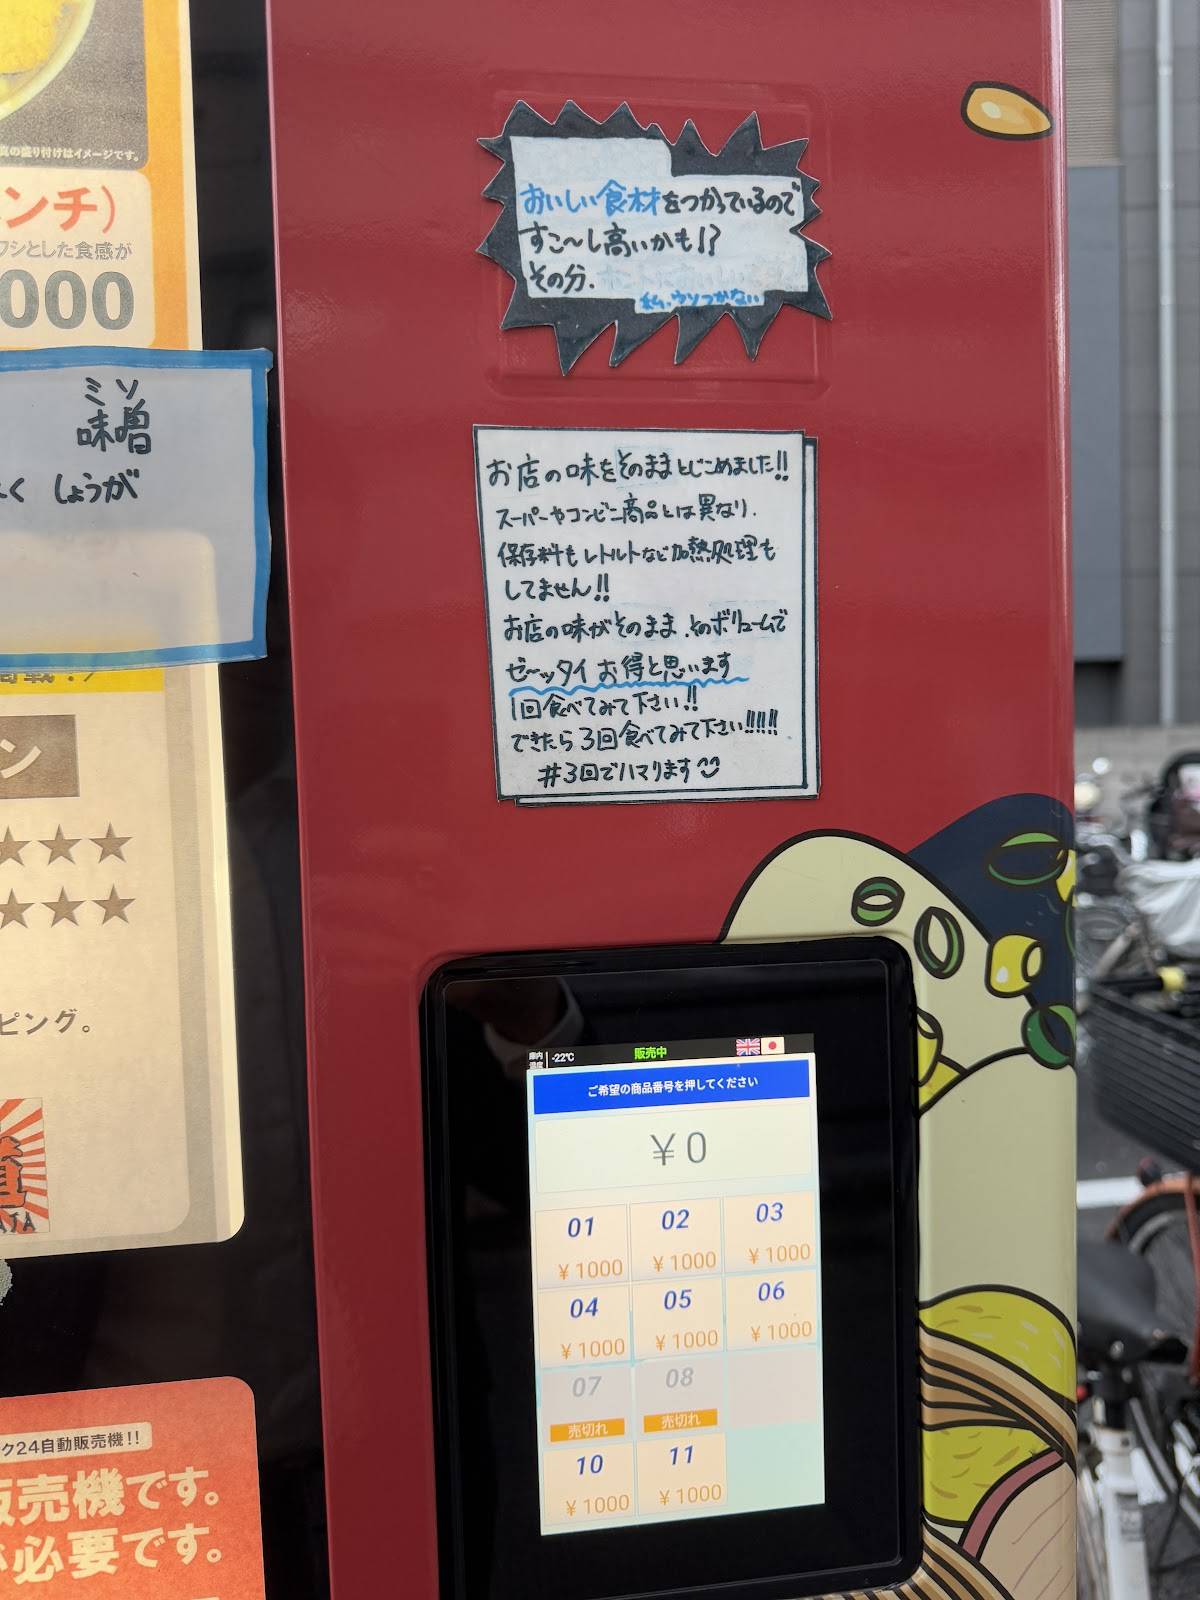 真の盛り付けはイメージです。
ンチ)
ワシとした食感が
000
ミソ
味噌
しょうが
ン
★★★
★★★
ピング。
ク24自動販売機!!
販売機です。
必要です。
おいしい食材をつかっているので
すこ〜し高いかも!?
その分、ホントにおいしいです!!
私、ウソつかない
お店の味をそのままとじこめました!!
スーパーやコンビニ商品とは異なり、
保存料もレトルトなど加熱処理も
してません!!
お店の味がそのまま、そのボリュームで
ゼ〜ッタイお得と思います
1回食べてみて下さい!!
できたら3回食べてみて下さい!!!!!
#3回でハマります
庫内温度 -22℃ 販売中
ご希望の商品番号を押してください
¥0
01 02 03
¥1000 ¥1000 ¥1000
04 05 06
¥1000 ¥1000 ¥1000
07 08
売切れ 売切れ
10 11
¥1000 ¥1000